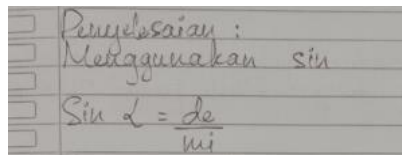 Penyelesaian :
Menggunakan sin
Sin α = de
mi